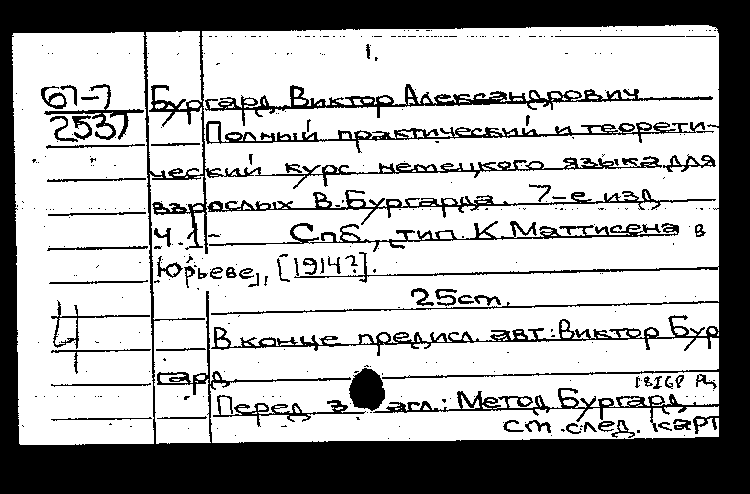 1.
67-7
2537
Бургард, Виктор Александрович
Полный практический и теорети-
ческий курс немецкого языка для
взрослых В. Бургарда. 7-е изд
Ч.1-   Спб., тип. К. Маттисена в
Юрьеве, [1914?].
25 ст.
В конце предисл. авт.: Виктор Бур
гард
Перед загл.: Метод Бургард.
ст. след. карт